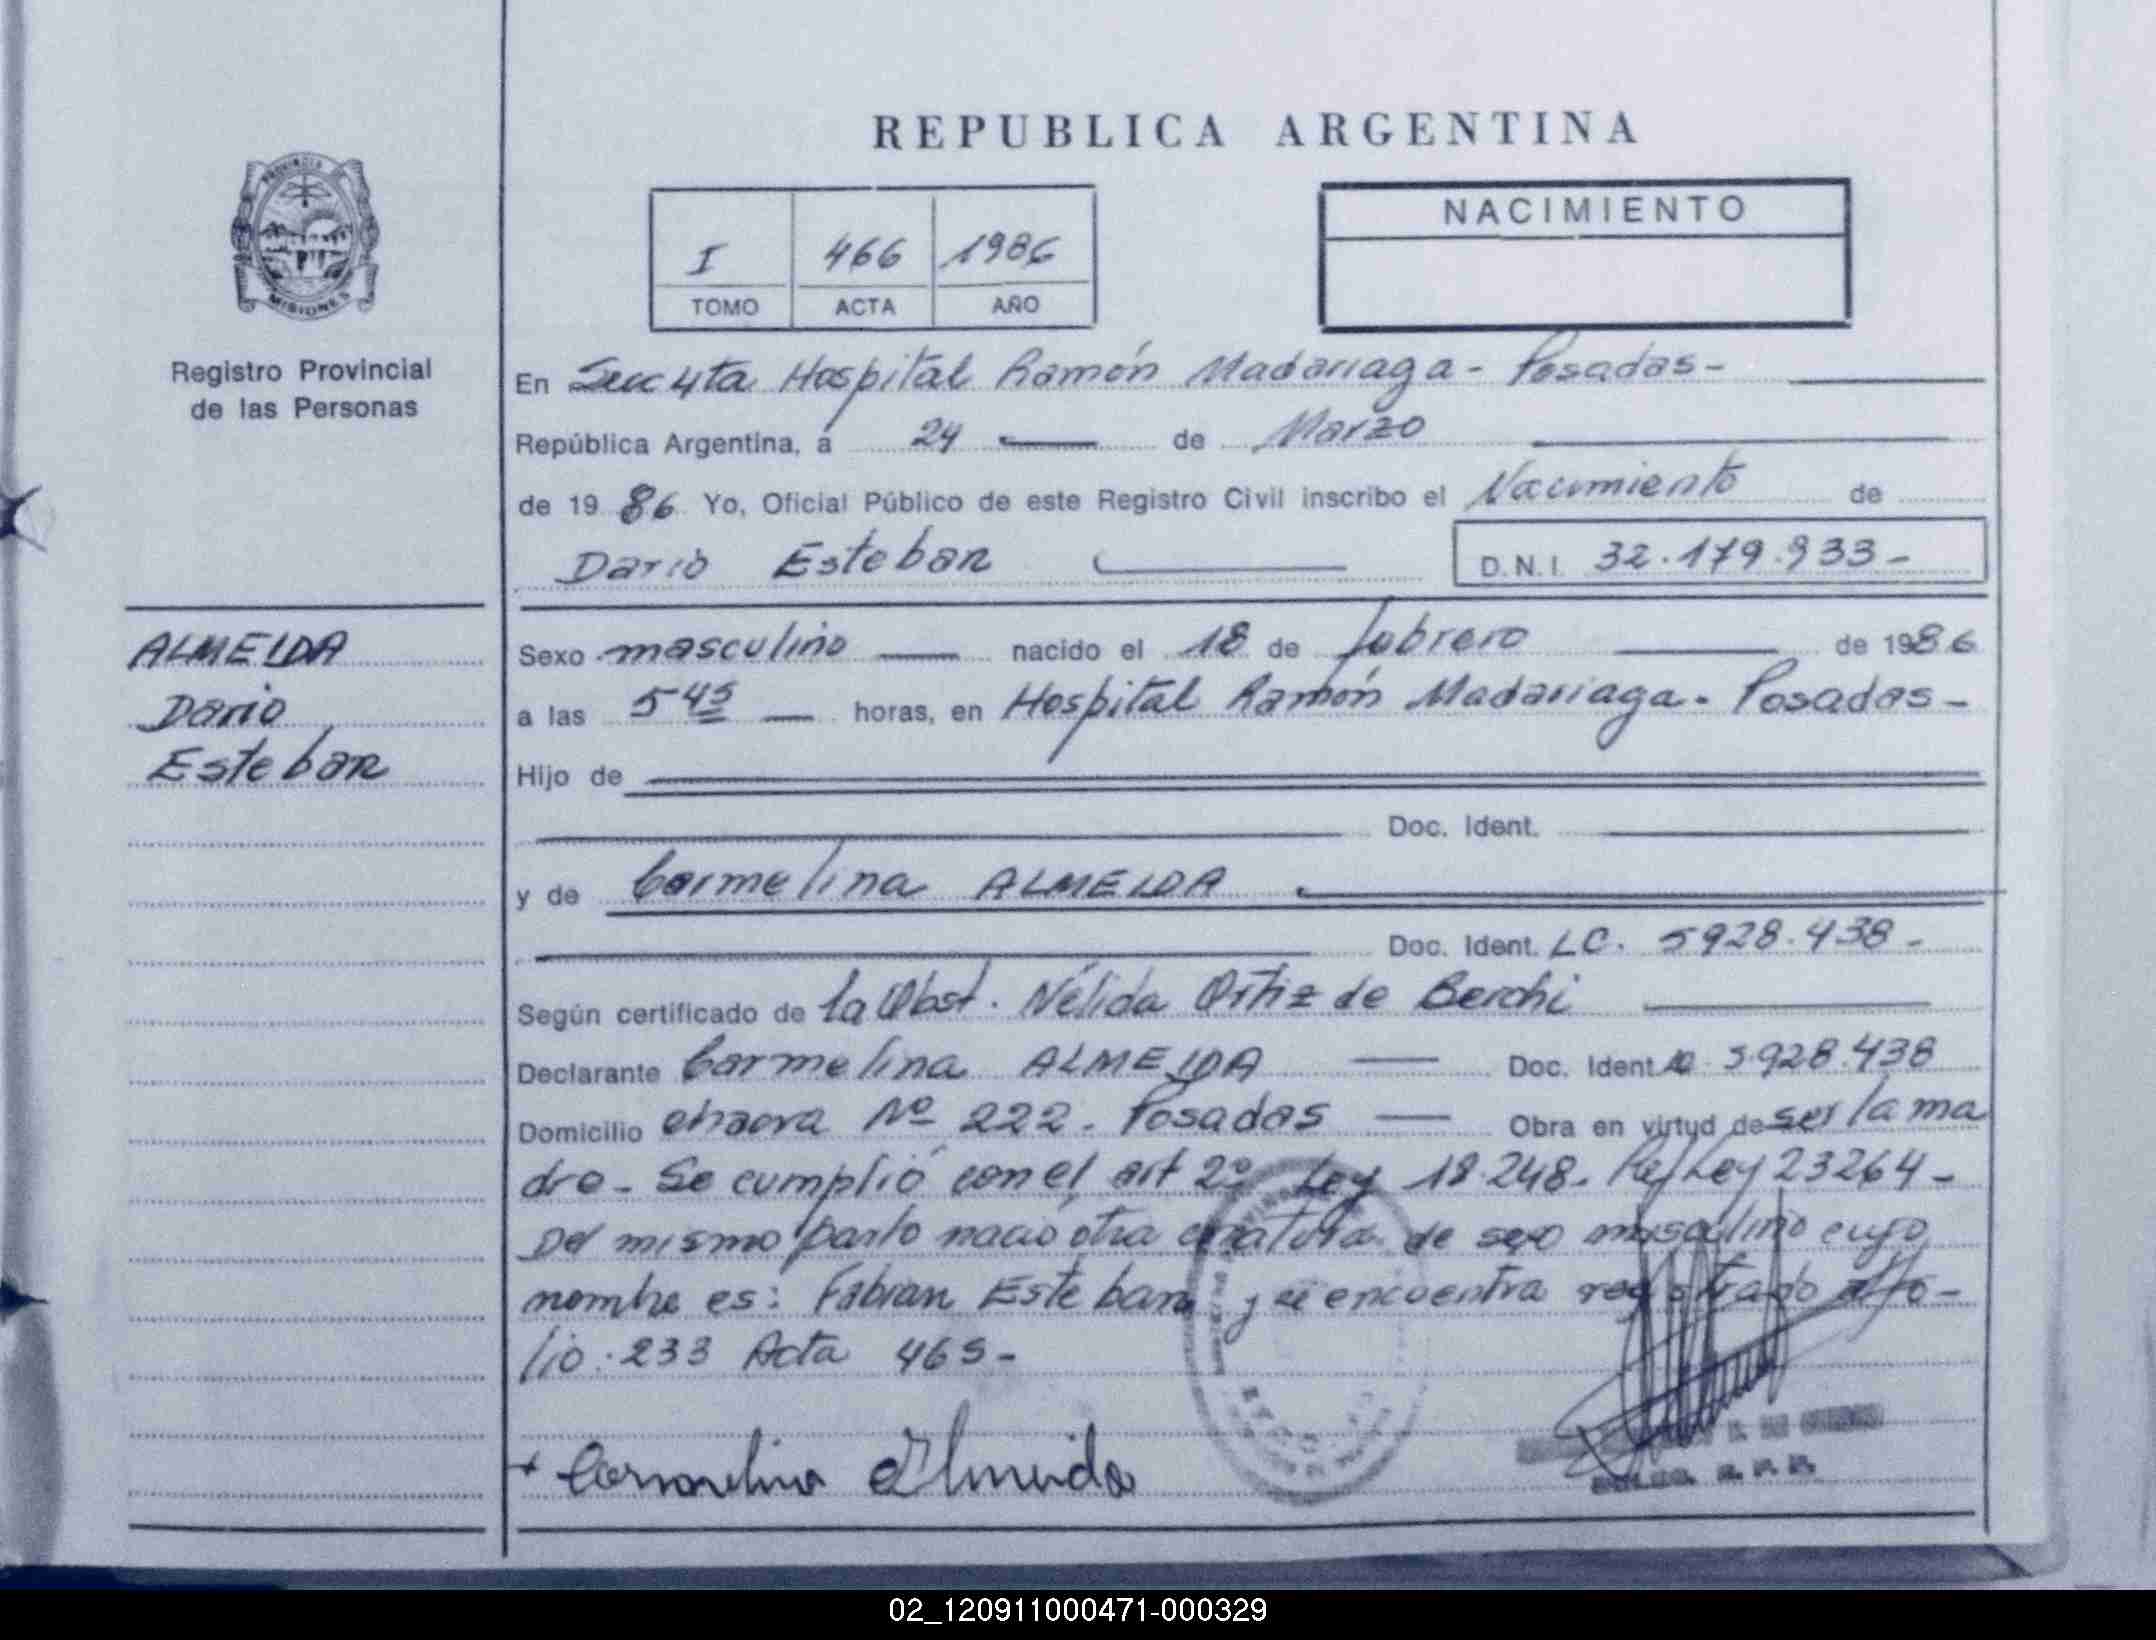 REPUBLICA ARGENTINA
PROVINCIA
MISIONES
Registro Provincial
de las Personas
I 466 1986
TOMO ACTA AÑO
NACIMIENTO
En Secc 4ta Hospital Ramón Madariaga - Posadas -
República Argentina, a 24 de Marzo
de 1986 Yo, Oficial Público de este Registro Civil inscribo el Nacimiento de
Dario Esteban D.N.I. 32.179.933-
ALMEIDA
Dario
Esteban
Sexo masculino nacido el 18 de febrero de 1986
a las 5 45 horas, en Hospital Ramón Madariaga - Posadas -
Hijo de
Doc. Ident.
y de Carmelina ALMEIDA
Doc. Ident. LC. 5928.438-
Según certificado de la Obst. Nélida Ortiz de Berchi
Declarante Carmelina ALMEIDA Doc. Ident. LC 5.928.438
Domicilio chacra Nº 222 - Posadas Obra en virtud de ser la ma
dre - Se cumplió con el art 2º Ley 18.248. Ref Ley 23264 -
Del mismo parto nació otra criatura de sexo masculino cuyo
nombre es: Fabian Esteban y se encuentra registrado al fo-
lio. 233 Acta 465-
Carmelina Almeida
02_120911000471-000329